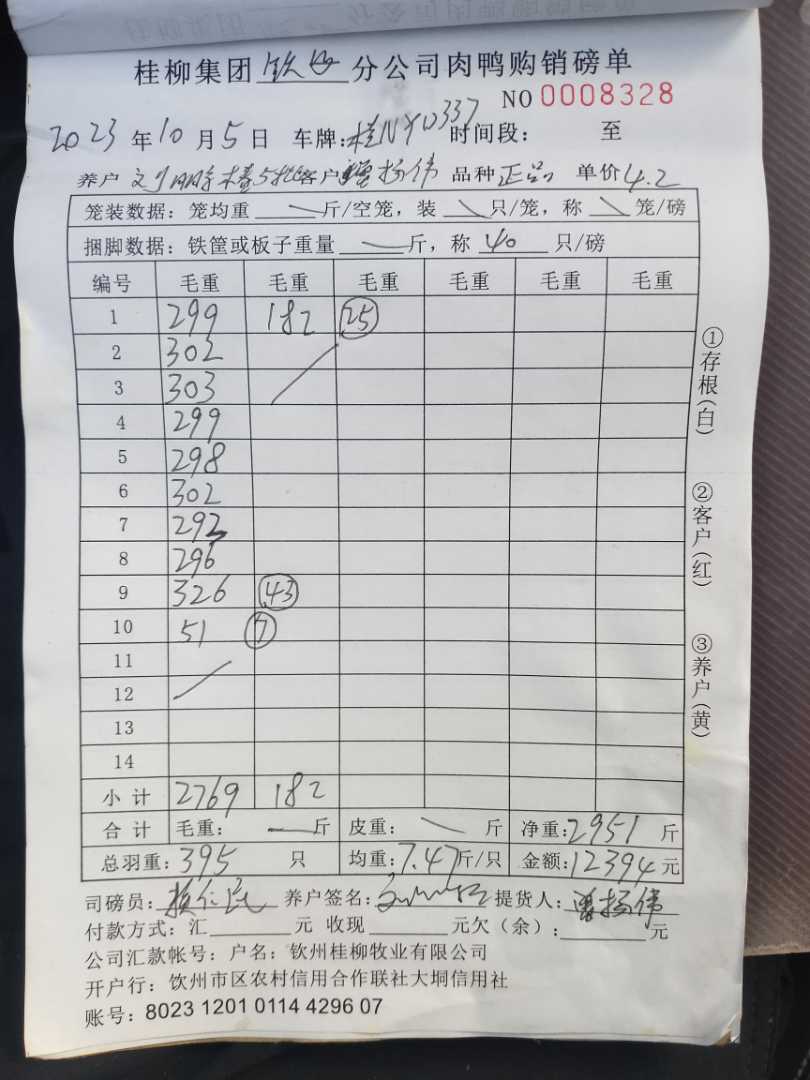 桂柳集团 钦州 分公司肉鸭购销磅单
NO 0008328
2023 年 10 月 5 日 车牌: 桂N 337 时间段: 至
养户 客户 杨伟 品种 正品 单价 4.2
笼装数据: 笼均重 斤/空笼, 装 只/笼, 称 笼/磅
捆脚数据: 铁筐或板子重量 斤, 称 40 只/磅
编号 毛重 毛重 毛重 毛重 毛重 毛重
1 299 182 25
2 302
3 303
4 299
5 298
6 302
7 292
8 296
9 326 43
10 51 7
11
12
13
14
小计 2769 182
合计 毛重: 斤 皮重: 斤 净重: 2951 斤
总羽重: 395 只 均重: 7.47 斤/只 金额: 12394 元
司磅员: 养户签名: 提货人: 杨伟
付款方式: 汇 元 收现 元欠(余): 元
公司汇款帐号: 户名: 钦州桂柳牧业有限公司
开户行: 钦州市区农村信用合作联社大垌信用社
账号: 8023 1201 0114 4296 07
①存根(白)
②客户(红)
③养户(黄)